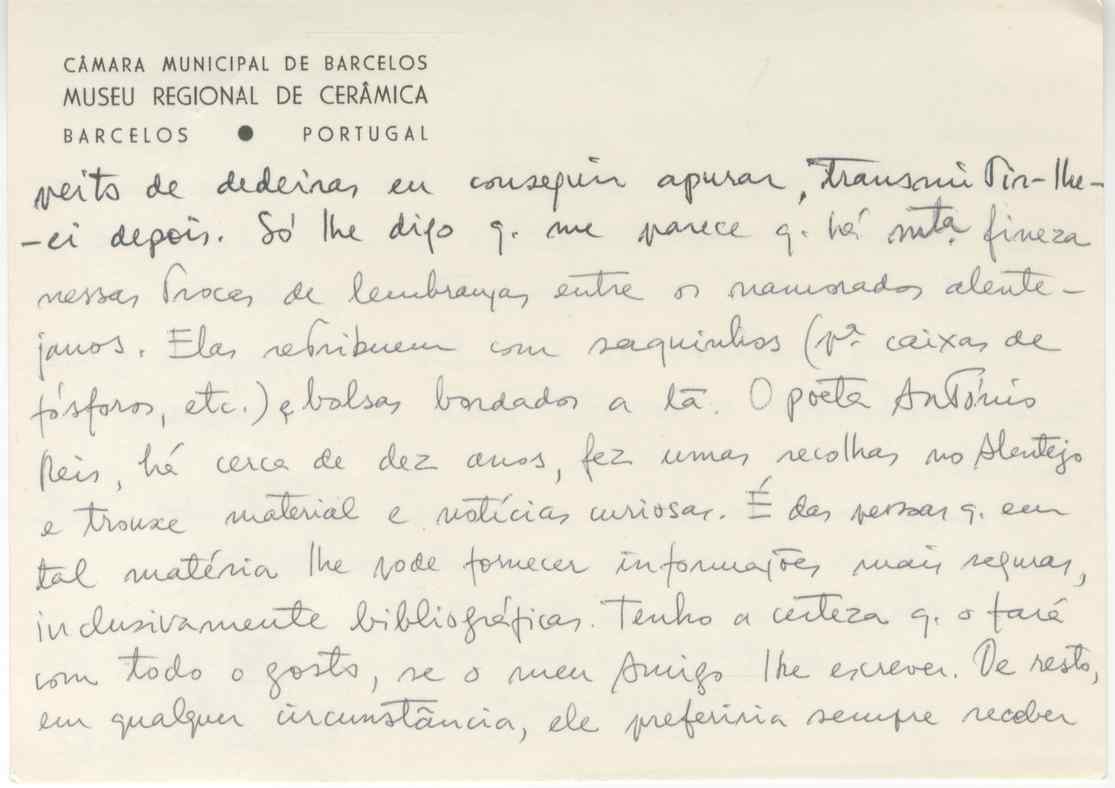 CÂMARA MUNICIPAL DE BARCELOS
MUSEU REGIONAL DE CERÂMICA
BARCELOS ● PORTUGAL
peito de dedeiras eu conseguir apurar, transmitir-lhe-
-ei depois. Só lhe digo q. me parece q. há mta. fineza
nessas trocas de lembranças entre os namorados alente-
janos. Elas retribuem com saquinhos (pª caixas de
fósforos, etc.) e bolsas bordados a lã. O poeta António
Reis, há cerca de dez anos, fez umas recolhas no Alentejo
e trouxe material e notícias curiosas. É das pessoas q. em
tal matéria lhe pode fornecer informações mais seguras,
inclusivamente bibliográficas. Tenho a certeza q. o fará
com todo o gosto, se o meu Amigo lhe escrever. De resto,
em qualquer circunstância, ele preferiria sempre receber